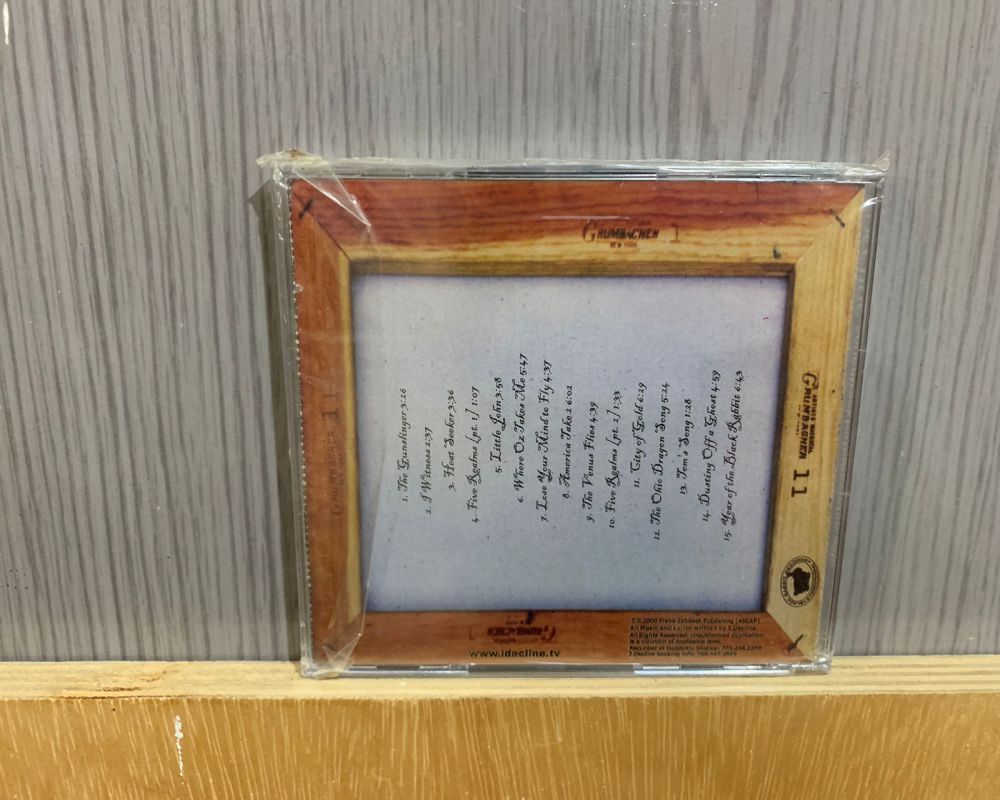 GRUMBACHER 1
NEW YORK
1. The Gunslinger 3:26
2. I Witness 2:37
3. Heat Seeker 3:36
4. Five Realms (pt. 1) 1:07
5. Little John 3:58
6. Where Oz Takes Me 5:47
7. Lose Your Mind to Fly 4:37
8. America Take 2 6:02
9. The Venus Flies 4:39
10. Five Realms (pt. 2) 1:33
11. City of Gold 6:29
12. The Ohio Dragon Song 5:24
13. Tom's Song 1:28
14. Dusting Off a Ghost 4:59
15. Year of the Black Rabbit 6:43
GRUMBACHER
11
GRUMBACHER
www.idecline.tv
All Music and Lyrics written by I Decline
All Rights Reserved. Unauthorized duplication
is a violation of applicable laws.